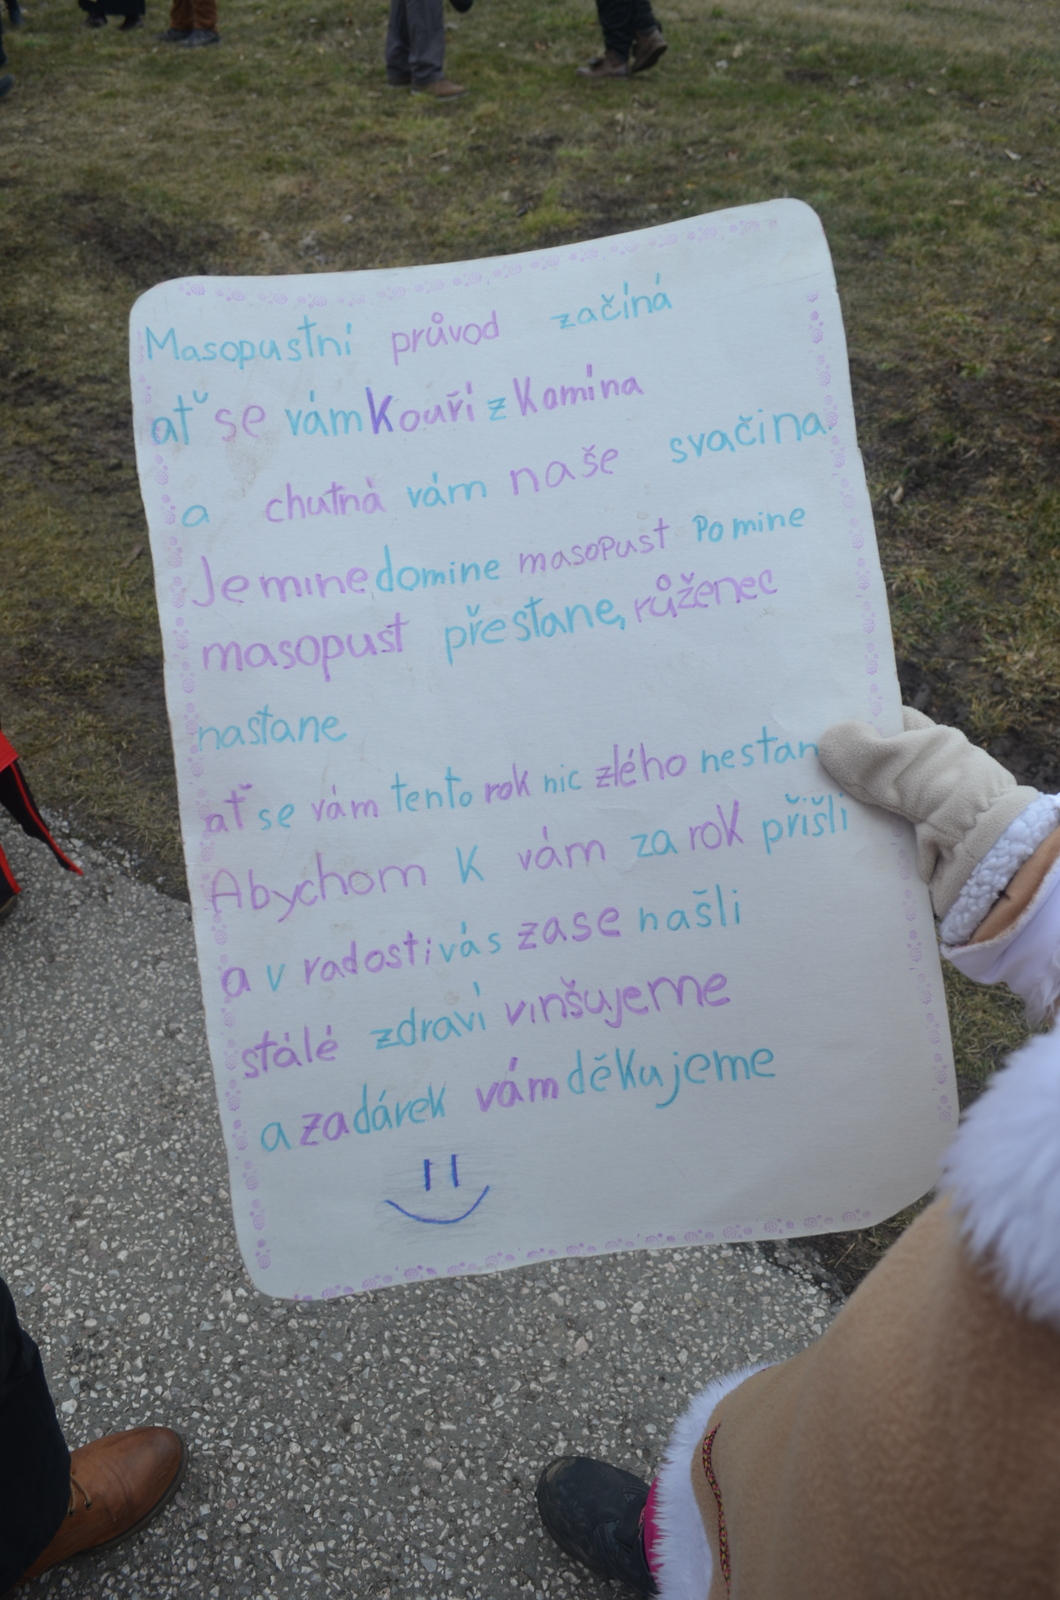 Masopustní průvod začíná
ať se vám Kouří z Komína
a chutná vám naše svačina.
Jemine domine masopust Pomine
masopust přestane, růženec
nastane
ať se vám tento rok nic zlého nestan
Abychom K vám za rok přišli
a v radosti vás zase našli
stálé zdraví vinšujeme
a za dárek vám děkujeme